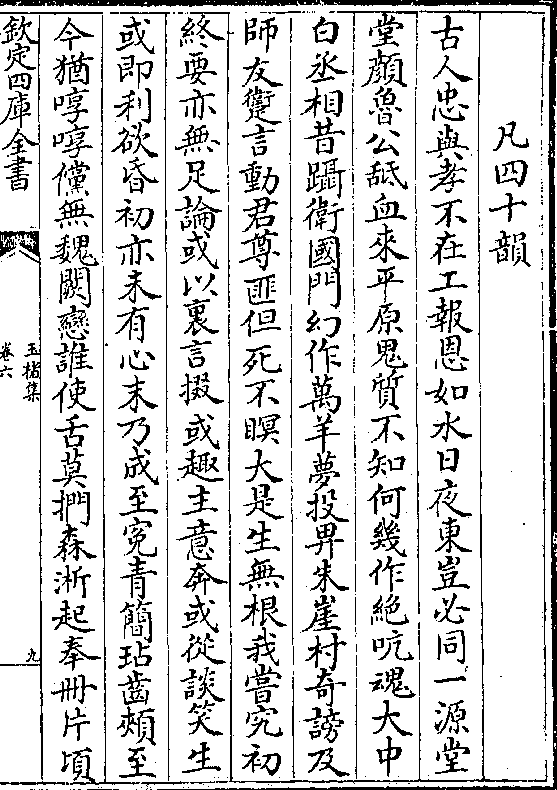 凡四十韻
古人忠與孝不在工報恩如水日夜東豈必同一源堂
堂顔魯公舐血來平原鬼質不知何幾作絶吭魂大中
白丞相昔躡衛國門幻作萬羊夢投畀朱崖村奇謗及
師友躗言動君尊匪但死不瞑大是生無根我嘗究初
終要亦無足論或以裏言掇或趣主意奔或從談笑生
或即利欲昏初亦未有心末乃成至寃青簡玷齒頰至
今猶啍啍儻無魏闕戀誰使舌莫捫森淅起奉冊片頃
欽定四庫全書
玉楮集
卷六
九